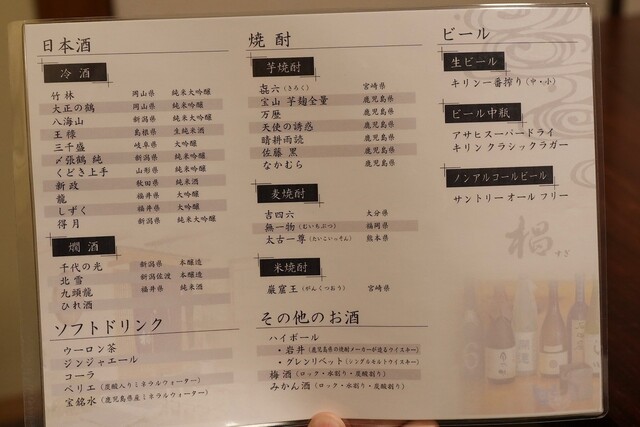 日本酒
冷酒
竹林 岡山県 純米大吟醸
大正の鶴 岡山県 純米大吟醸
八海山 新潟県 純米大吟醸
王祿 島根県 生純米酒
三千盛 岐阜県 大吟醸
〆張鶴 純 新潟県 純米吟醸
くどき上手 山形県 純米吟醸
新政 秋田県 純米酒
龍 福井県 大吟醸
しずく 福井県 大吟醸
得月 新潟県 純米大吟醸
燗酒
千代の光 新潟県 本醸造
北雪 新潟佐渡 本醸造
九頭龍 福井県 純米酒
ひれ酒
ソフトドリンク
ウーロン茶
ジンジャエール
コーラ
ペリエ(炭酸入りミネラルウォーター)
宝銘水(鹿児島県産ミネラルウォーター)
焼酎
芋焼酎
㐂六(きろく) 宮崎県
宝山 芋麹全量 鹿児島県
万暦 鹿児島県
天使の誘惑 鹿児島県
晴耕雨読 鹿児島県
佐藤 黒 鹿児島県
なかむら 鹿児島県
麦焼酎
吉四六 大分県
無一物(むいちぶつ) 福岡県
太古一尊(たいこいっそん) 熊本県
米焼酎
巌窟王(がんくつおう) 宮崎県
その他のお酒
ハイボール
・岩井(鹿児島県の焼酎メーカーが造るウイスキー)
・グレンリベット(シングルモルトウイスキー)
梅酒(ロック・水割り・炭酸割り)
みかん酒(ロック・水割り・炭酸割り)
ビール
生ビール
キリン一番搾り(中・小)
ビール中瓶
アサヒスーパードライ
キリン クラシックラガー
ノンアルコールビール
サントリー オール フリー
椙 すぎ